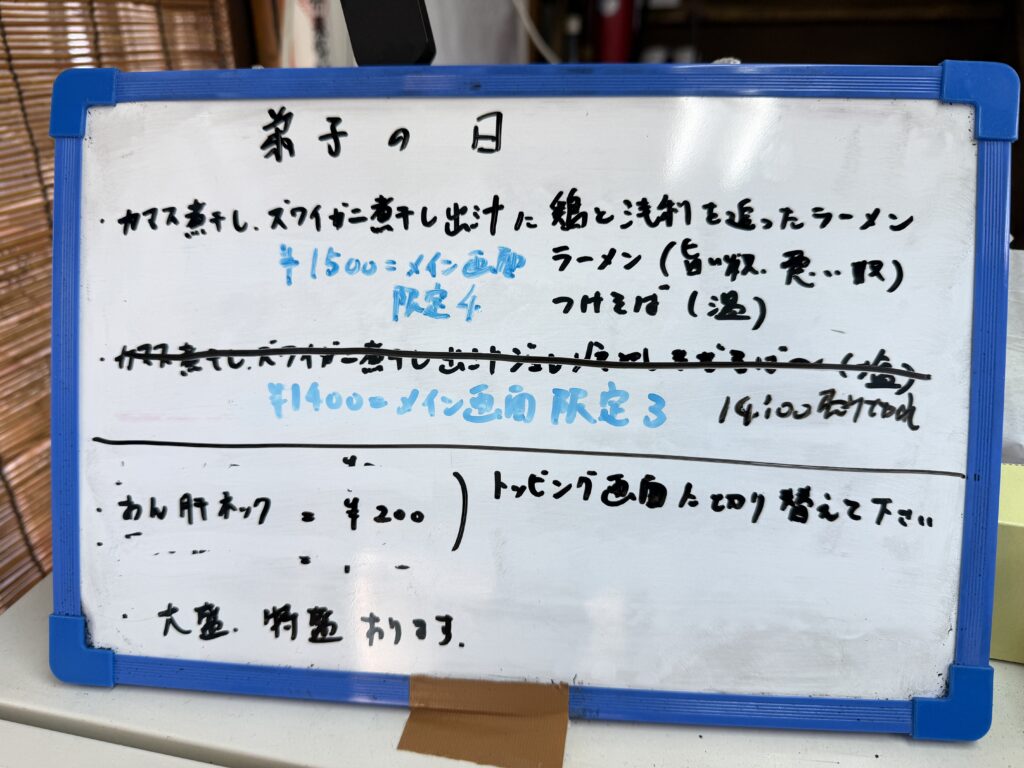 弟子の日
・カマス煮干し、ズワイガニ煮干し出汁に鶏と浅利を追ったラーメン
¥1500=メイン画面 ラーメン(旨い奴、悪い奴)
限定4 つけそば(温)
・カマス煮干し、ズワイガニ煮干し出汁ジュレ (塩)
¥1400=メイン画面 限定3 14:00売りきれ
・あん肝ネック = ¥200 ) トッピング画面に切り替えて下さい
・大盛、特盛あります。